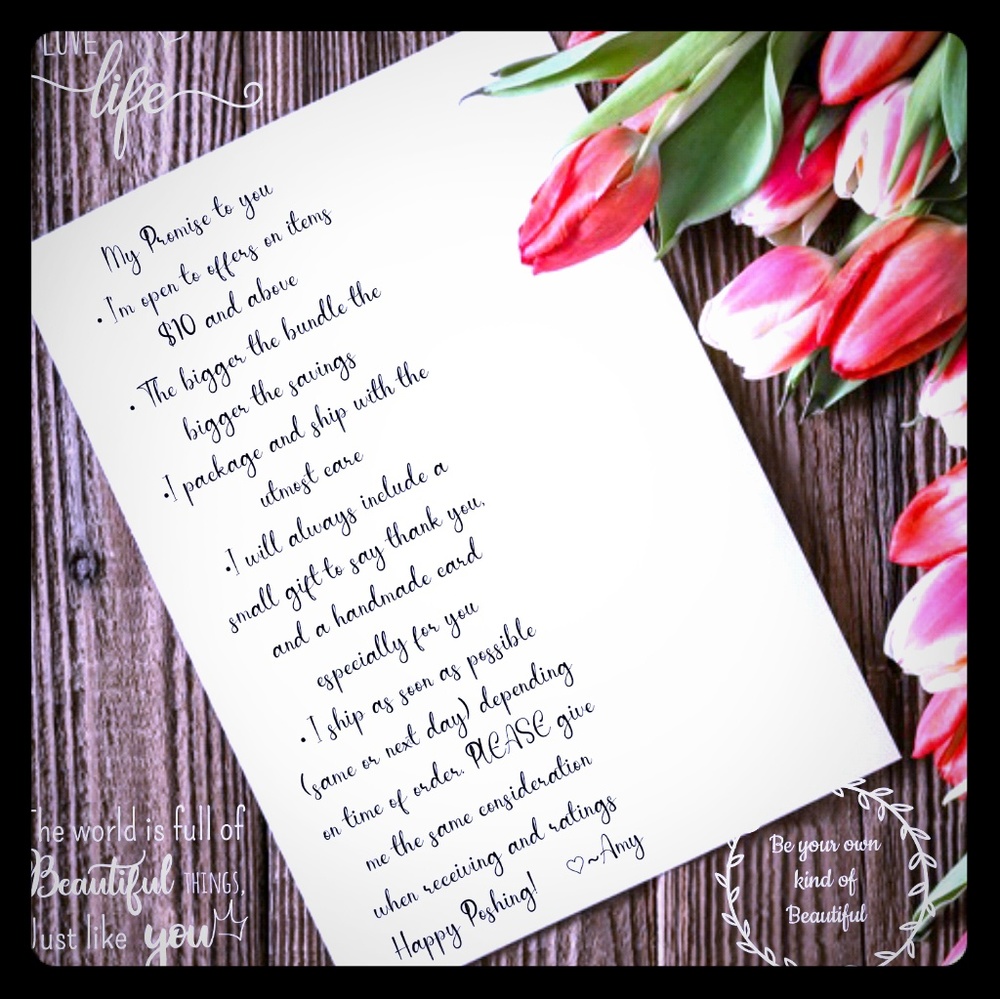 LOVE
life
My Promise to you
• I'm open to offers on items
$10 and above
• The bigger the bundle the
bigger the savings
•I package and ship with the
utmost care
•I will always include a
small gift to say thank you,
and a handmade card
especially for you
• I ship as soon as possible
(same or next day) depending
on time of order. PLEASE give
me the same consideration
when receiving and ratings
Happy Poshing! ♡~Amy
The world is full of
Beautiful THINGS,
Just like you
Be your own
kind of
Beautiful